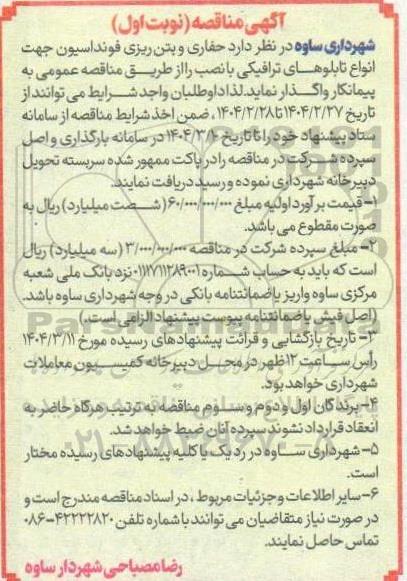 آگهی مناقصه (نوبت اول)
شهرداری ساوه در نظر دارد حفاری و بتن ریزی فونداسیون جهت
انواع تابلوهای ترافیکی با نصب را از طریق مناقصه عمومی به
پیمانکار واگذار نماید. لذا داوطلبان واجد شرایط می توانند از
تاریخ ۱۴۰۴/۲/۲۷ تا ۱۴۰۴/۲/۲۸ ، ضمن اخذ شرایط مناقصه از سامانه
ستاد پیشنهاد خود را تا تاریخ ۱۴۰۴/۳/۱۰ در سامانه بارگذاری و اصل
سپرده شرکت در مناقصه را در پاکت ممهور شده سربسته تحویل
دبیرخانه شهرداری نموده و رسید دریافت نمایند.
۱- قیمت برآورد اولیه مبلغ ۶۰/۰۰۰/۰۰۰/۰۰۰ (شصت میلیارد) ریال به
صورت مقطوع می باشد.
۲- مبلغ سپرده شرکت در مناقصه ۳/۰۰۰/۰۰۰/۰۰۰ (سه میلیارد) ریال
است که باید به حساب شماره ۰۱۱۱۷۱۱۲۸۹۰۰۱ نزد بانک ملی شعبه
مرکزی ساوه واریز یا ضمانتنامه بانکی در وجه شهرداری ساوه باشد.
(اصل فیش یا ضمانتنامه پیوست پیشنهاد الزامی است.)
۳- تاریخ بازگشایی و قرائت پیشنهادهای رسیده مورخ ۱۴۰۴/۳/۱۱
رأس ساعت ۱۲ ظهر در محل دبیرخانه کمیسیون معاملات
شهرداری خواهد بود.
۴- برندگان اول و دوم و سوم مناقصه به ترتیب هرگاه حاضر به
انعقاد قرارداد نشوند سپرده آنان ضبط خواهد شد.
۵- شهرداری ساوه در رد یک یا کلیه پیشنهادهای رسیده مختار
است.
۶- سایر اطلاعات و جزئیات مربوط ، در اسناد مناقصه مندرج است و
در صورت نیاز متقاضیان می توانند با شماره تلفن ۴۲۲۲۲۸۲۰-۰۸۶
تماس حاصل نمایند.
رضا مصباحی شهردار ساوه